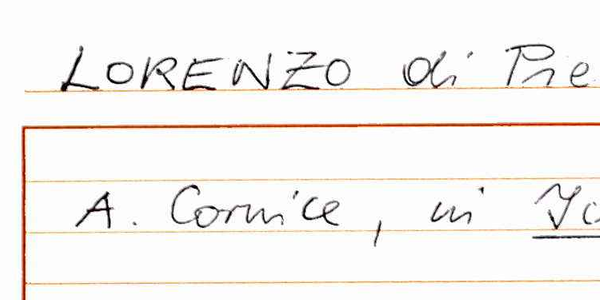 LORENZO di Pie
A. Cornice, in